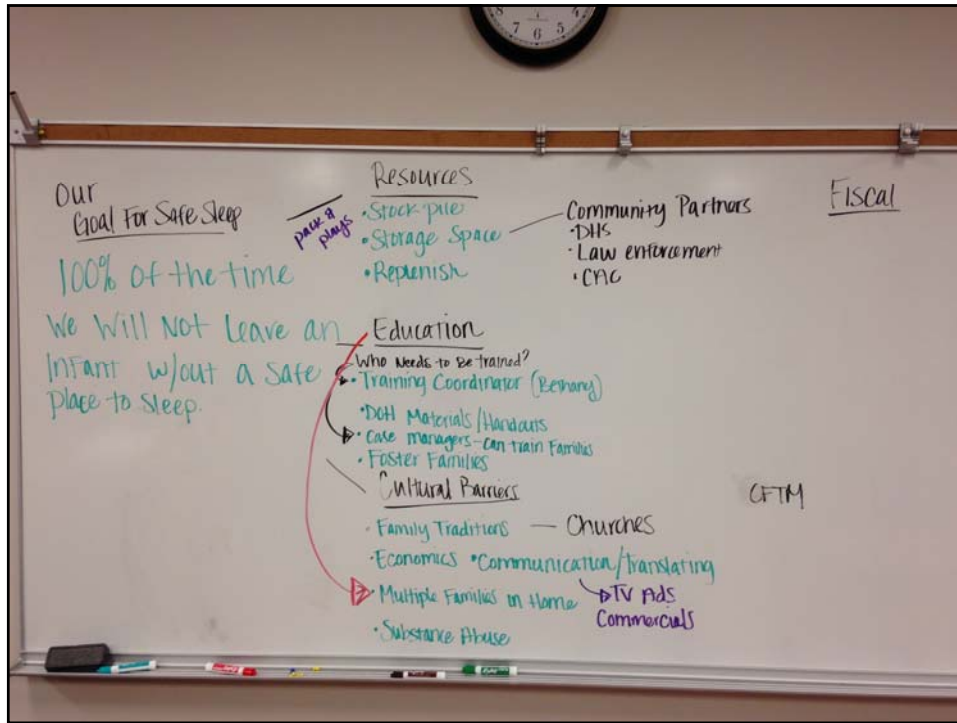 Our
Goal For Safe Sleep
100% of the time
We Will Not Leave an
Infant w/out a safe
Place to Sleep.
Resources
pack &
plays
• Stock pile
• Storage Space
• Replenish
Community Partners
• DHS
• Law enforcement
• CAC
Fiscal
Education
Who Needs to Be trained?
• Training Coordinator (Bethany)
• DOH Materials/Handouts
• Case managers - can train Families
• Foster Families
Cultural Barriers
• Family Traditions — Churches
• Economics • Communication/Translating
TV Ads
Commercials
• Multiple Families in Home
• Substance Abuse
CFTM
8
7
6
5
4